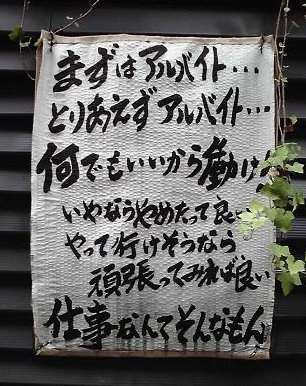 まずはアルバイト・・・
とりあえずアルバイト・・・
何でもいいから働け
いやならやめたって良い
やって行けそうなら
頑張ってみれば良い
仕事なんてそんなもん